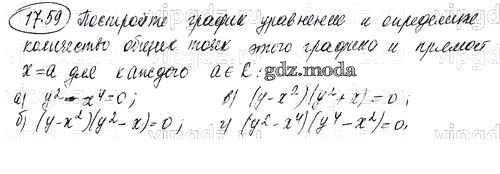 17.59) Постройте график уравнение и определите
количество общих точек этого графика и прямой
x=a для каждого a∈R: gdz.moda
а) y²-x⁴=0; в) (y-x²)(y²+x)=0;
б) (y-x²)(y²-x)=0; г) (y²-x⁴)(y⁴-x²)=0.